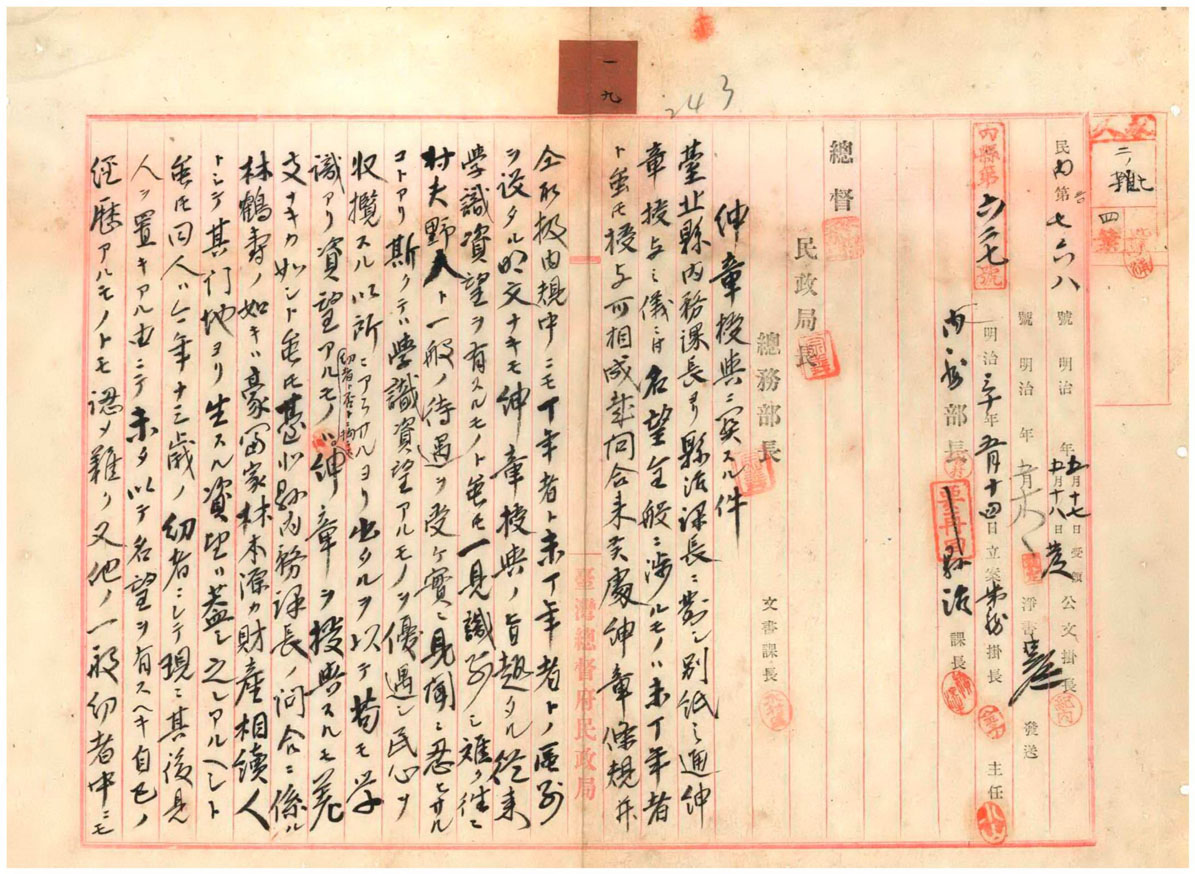 一九
243
永久
二ノ雜七
四、
民內第七六八號 明治 年五月十七日受領 公文掛長
號 明治 年五月十八日淨書 發送
內縣第六二七號 明治三十年五月十四日立案 主任
內務部長 縣治課長
總督
民政局長
總務部長 文書課長
紳章授與ニ関スル件
臺北縣內務課長ヨリ縣治課長ニ對シ別紙之通紳
章授与之儀ニ付名望全般ニ涉ルモノハ未丁年者
ト雖モ授与可相成哉問合來候處紳章條規并
仝取扱內規中ニモ丁年者ト未丁年者トノ區別
ヲ設タル明文ナキモ紳章授與ノ旨趣タル從來
學識資望ヲ有スルモノト雖モ一見識別シ難ク往々
村夫野人ト一般ノ待遇ヲ受ケ實ニ見聞ニ忍ヒサル
コトアリ斯クテハ學識資望アルモノヲ優遇シ民心ヲ
收攬スル以所ニアラサルヨリ出タルヲ以テ苟モ学
識アリ資望アルモノハ紳章ヲ授與スルモ差
支ナキカ如シト雖モ臺北縣內務課長ノ問合ニ係ル
林鶴壽ノ如キハ豪富家林本源カ財產相續人
トシテ其門地ヨリ生スル資望ハ蓋シ之レアルヘシト
雖モ同人ハ今年十三歲ノ幼者ニシテ現ニ其後見
人ヲ置キアル由ニテ未タ以テ名望ヲ有スヘキ自己ノ
經歷アルモノトモ認メ難ク又他ノ一般幼者中ニモ
臺灣總督府民政局